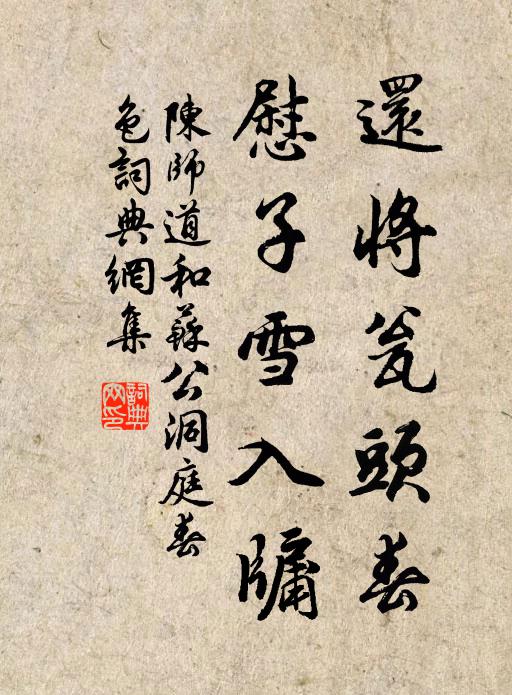 還將瓮頭春
慰子雪入牖
陳師道和蘇公洞庭春
色詞典網集
詞典
网印